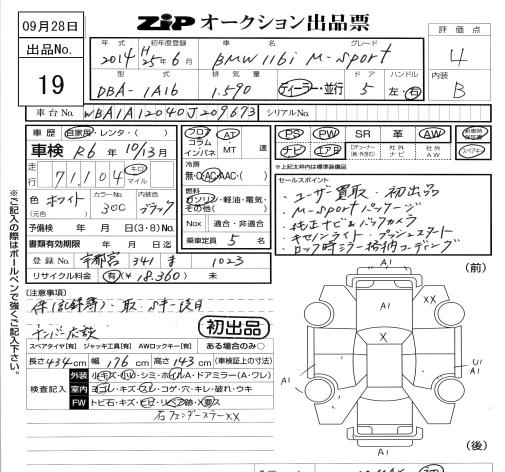 09月28日
ZIP オークション出品票
出品No.
19
年式 初年度登録 車名 グレード
2014 H25年6月 BMW 116i M-sport
型式 排気量 ドア ハンドル
DBA-1A16 1.590 ディーラー・並行 5 左・右
評価点
4
内装
B
車台No. WBA1A12040J209673 シリアルNo.
車歴 自家用・レンタ・( )
車検 R6年 10/13月
走行 71,104 キロ マイル
色 ホワイト カラーNo. 300 内装色 ブラック
(元色)
予備検 年 月 日(3・8)No.
書類有効期限 年 月 日迄
登録No. 宇都宮 341 ま 1023
リサイクル料金 有(¥18.360)
フロア コラム インパネ AT MT 速
冷房
無・C・AC・AAC
燃料
ガソリン・軽油・電気・その他( )
Nox 適合・非適合
乗車定員 5 名
PS PW SR 革 AW 新車時保証書
ナビ エアB Dチョーナー(純・外含む) 社外ナビ 社外AW スペアキー
※上記太枠内は標準装備品
セールスポイント
・ユーザー買取・初出品
・M-sportパッケージ
・純正ナビ&バックカメラ
・キセノンライト・プッシュスタート
・ロック時ミラー格納コーディング
※ご記入の際はボールペンで強くご記入下さい。
(注意事項)
ナンバー応談
初出品
スペアタイヤ[有] ジャッキ工具[有] AWロックキー[有] ある場合のみ○
長さ434cm 幅176cm 高さ143cm (車検証上の寸法)
検査記入
外装 小キズ・小凹・シミ・ホイルA・ドアミラー(A・ワレ)
室内 ヨゴレ・キズ・スレ・コゲ・穴・キレ・破れ・ウキ
FW トビ石・キズ・ヒビ・リペア跡・X要ス
右フェンダーステーXX
(前)
A1
XX
A1
X
A1
U1
A1
A1
(後)